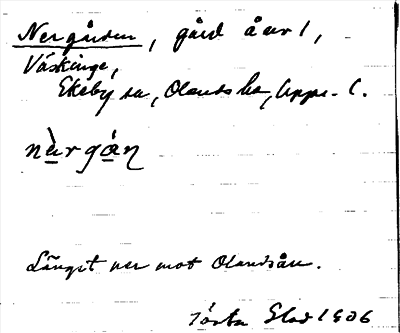 Nergården, gård å av 1,
Väskinge,
Ekeby sn, Olands hd, Upps. l.
nàrgán
Längst ner mot Olandsån.
Gösta 1906